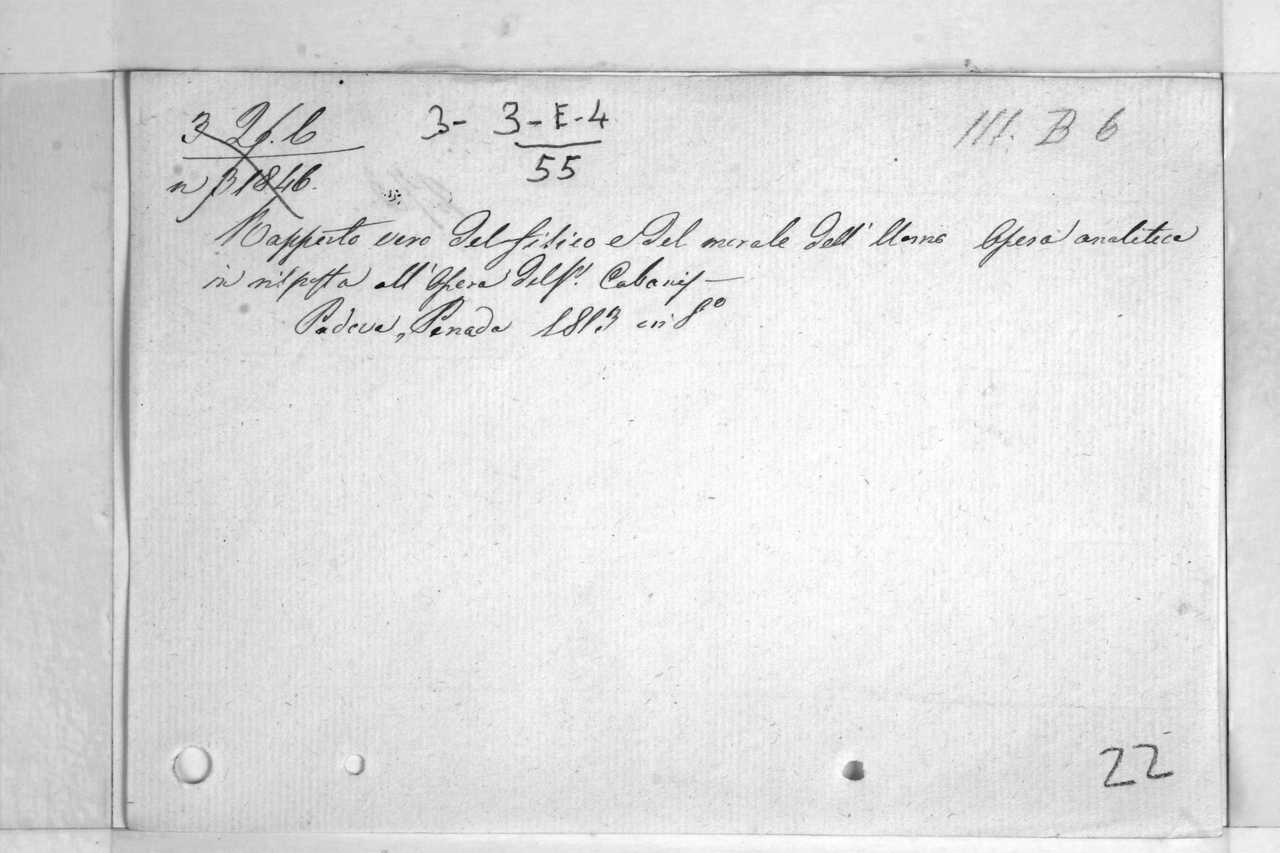 3 26.6 3- 3-E-4 III. B 6
n 31846. 55
Rapporto vero del fisico e del morale dell' Uomo Opera analitica
in risposta all' Opera del Sr. Cabanis –
Padova, Penada 1813 in 8º
22